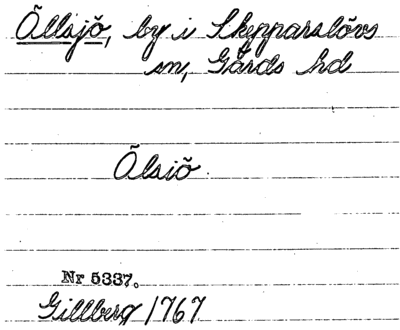 Öllsjö, by i Skepparslövs
sn, Gärds hd
Ölsiö.
Nr 5337.
Gillberg 1767